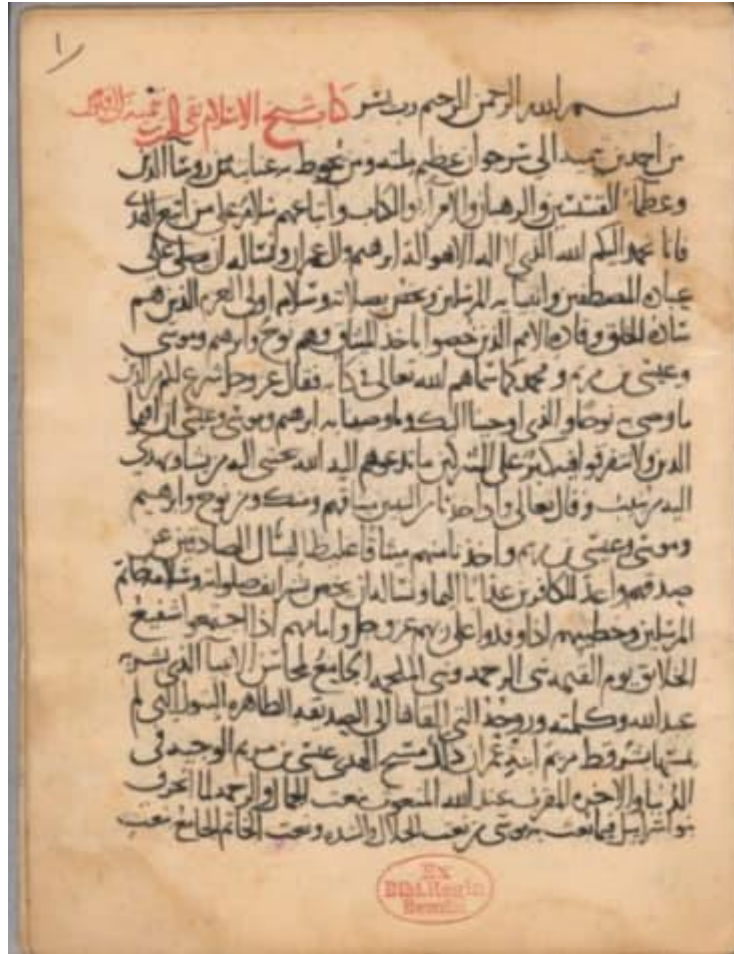 ١
بسم الله الرحمن الرحيم رب يسر كتاب شيخ الاسلام تقي الدين
من احمد بن تيميه الى سرجوان عظيم ملته ومن تحوط به عنايته من روسآ الدين
وعظمآء القسيسين والرهبان والامرآء والكتاب واتباعهم سلام على من اتبع الهدى
فانا نحمد اليكم الله الذي لا اله الا هو اله ابرهيم وال عمران ونساله ان يصلي على
عباده المصطفين وانبيايه المرسلين ويخص بصلاته وسلامه اولي العزم الذين هم
ساده الخلق وقاده الامم الذين خصوا باخذ الميثاق وهم نوح وابرهيم وموسى
وعيسى بن مريم ومحمد كما سماهم الله تعالى في كتابه فقال عز وجل شرع لكم من الدين
ما وصى به نوحا والذي اوحينا اليك وما وصينا به ابرهيم وموسى وعيسى ان اقيموا
الدين ولا تتفرقوا فيه كبر على المشركين ما تدعوهم اليه الله يجتبي اليه من يشا ويهدي
اليه من ينيب وقال تعالى واذ اخذنا من النبيين ميثاقهم ومنك ومن نوح وابرهيم
وموسى وعيسى بن مريم واخذنا منهم ميثاقا غليظا ليسال الصادقين عن
صدقهم واعد للكافرين عذابا اليما ونساله ان يخص بشرايف صلواته وسلامه خاتم
المرسلين وخطيبهم اذا وفدوا على ربهم عز وجل وامامهم اذا اجتمعوا شفيع
الخلايق يوم القيمه نبي الرحمه ونبي الملحمه الجامع لمحاسن الانبيا الذي بشر به
عبد الله وكلمته وروحه التي القاها الى الصديقه الطاهره البتول التي لم
يمسها بشر قط مريم ابنة عمران ذلك مسيح الهدى عيسى بن مريم الوجيه في
الدنيا والاخره المقرب عند الله المنعوت بنعت الجمال والرحمه لما انحرف
بنو اسراييل فيما بعث به موسى من نعت الجلال والشده وبعث الخاتم الجامع بنعت
Ex
Bibl. Regia